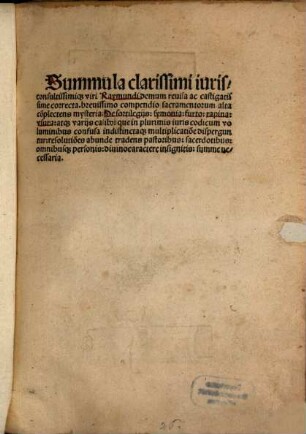 Summula clarissimi iuris-
consultissimiqȝ viri Raymundi: demum reuisa ac castigatis
sime correcta. breuissimo compendio sacramentorum alta
cōplectens mysteria: De sacrilegijs: symonia: furto: rapina:
vsura: atqȝ varijs casibꝰ que in plurimis iuris codicum vo
luminibus confusa indistinctaqȝ multiplicatiōe dispergun
tur: resolutiōes abunde tradens pastoribus: sacerdotibus:
omnibusqȝ personis: diuino caractere insignitis: summe ne
cessaria.